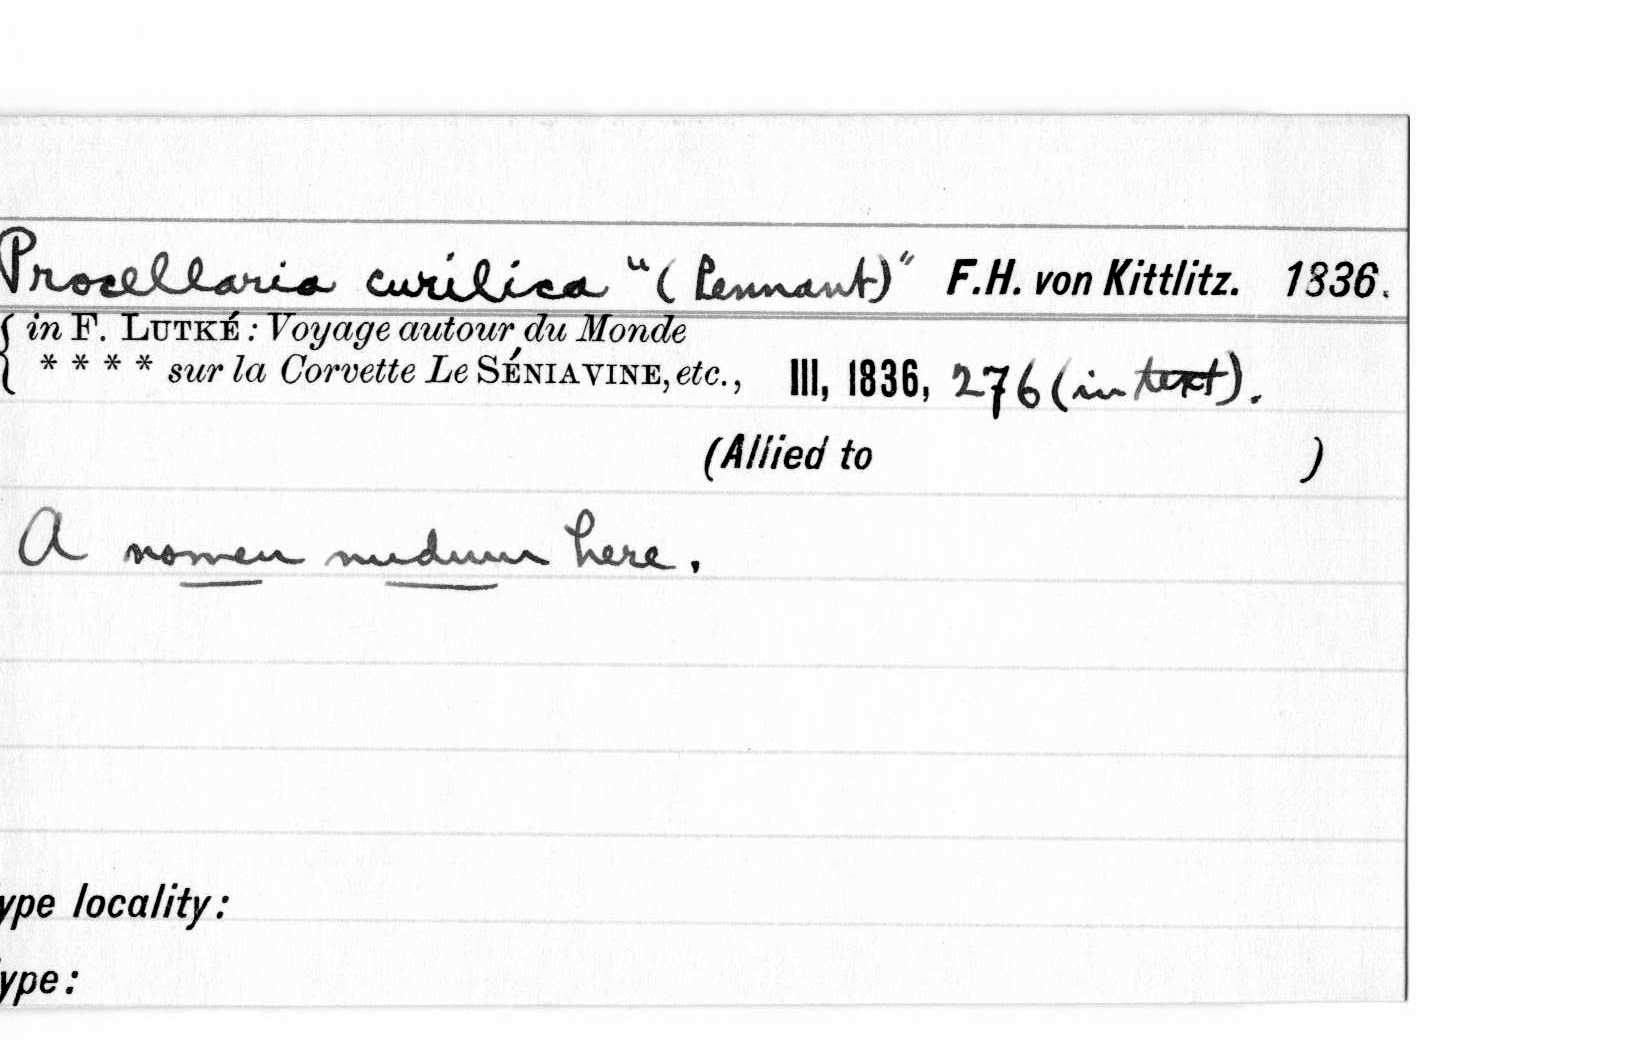 Procellaria curilica "(Pennant)" F.H. von Kittlitz. 1836.
{ in F. LUTKÉ: Voyage autour du Monde
* * * * sur la Corvette Le SÉNIAVINE, etc., III, 1836, 276 (in text).
(Allied to )
A nomen nudum here.
ype locality:
ype: